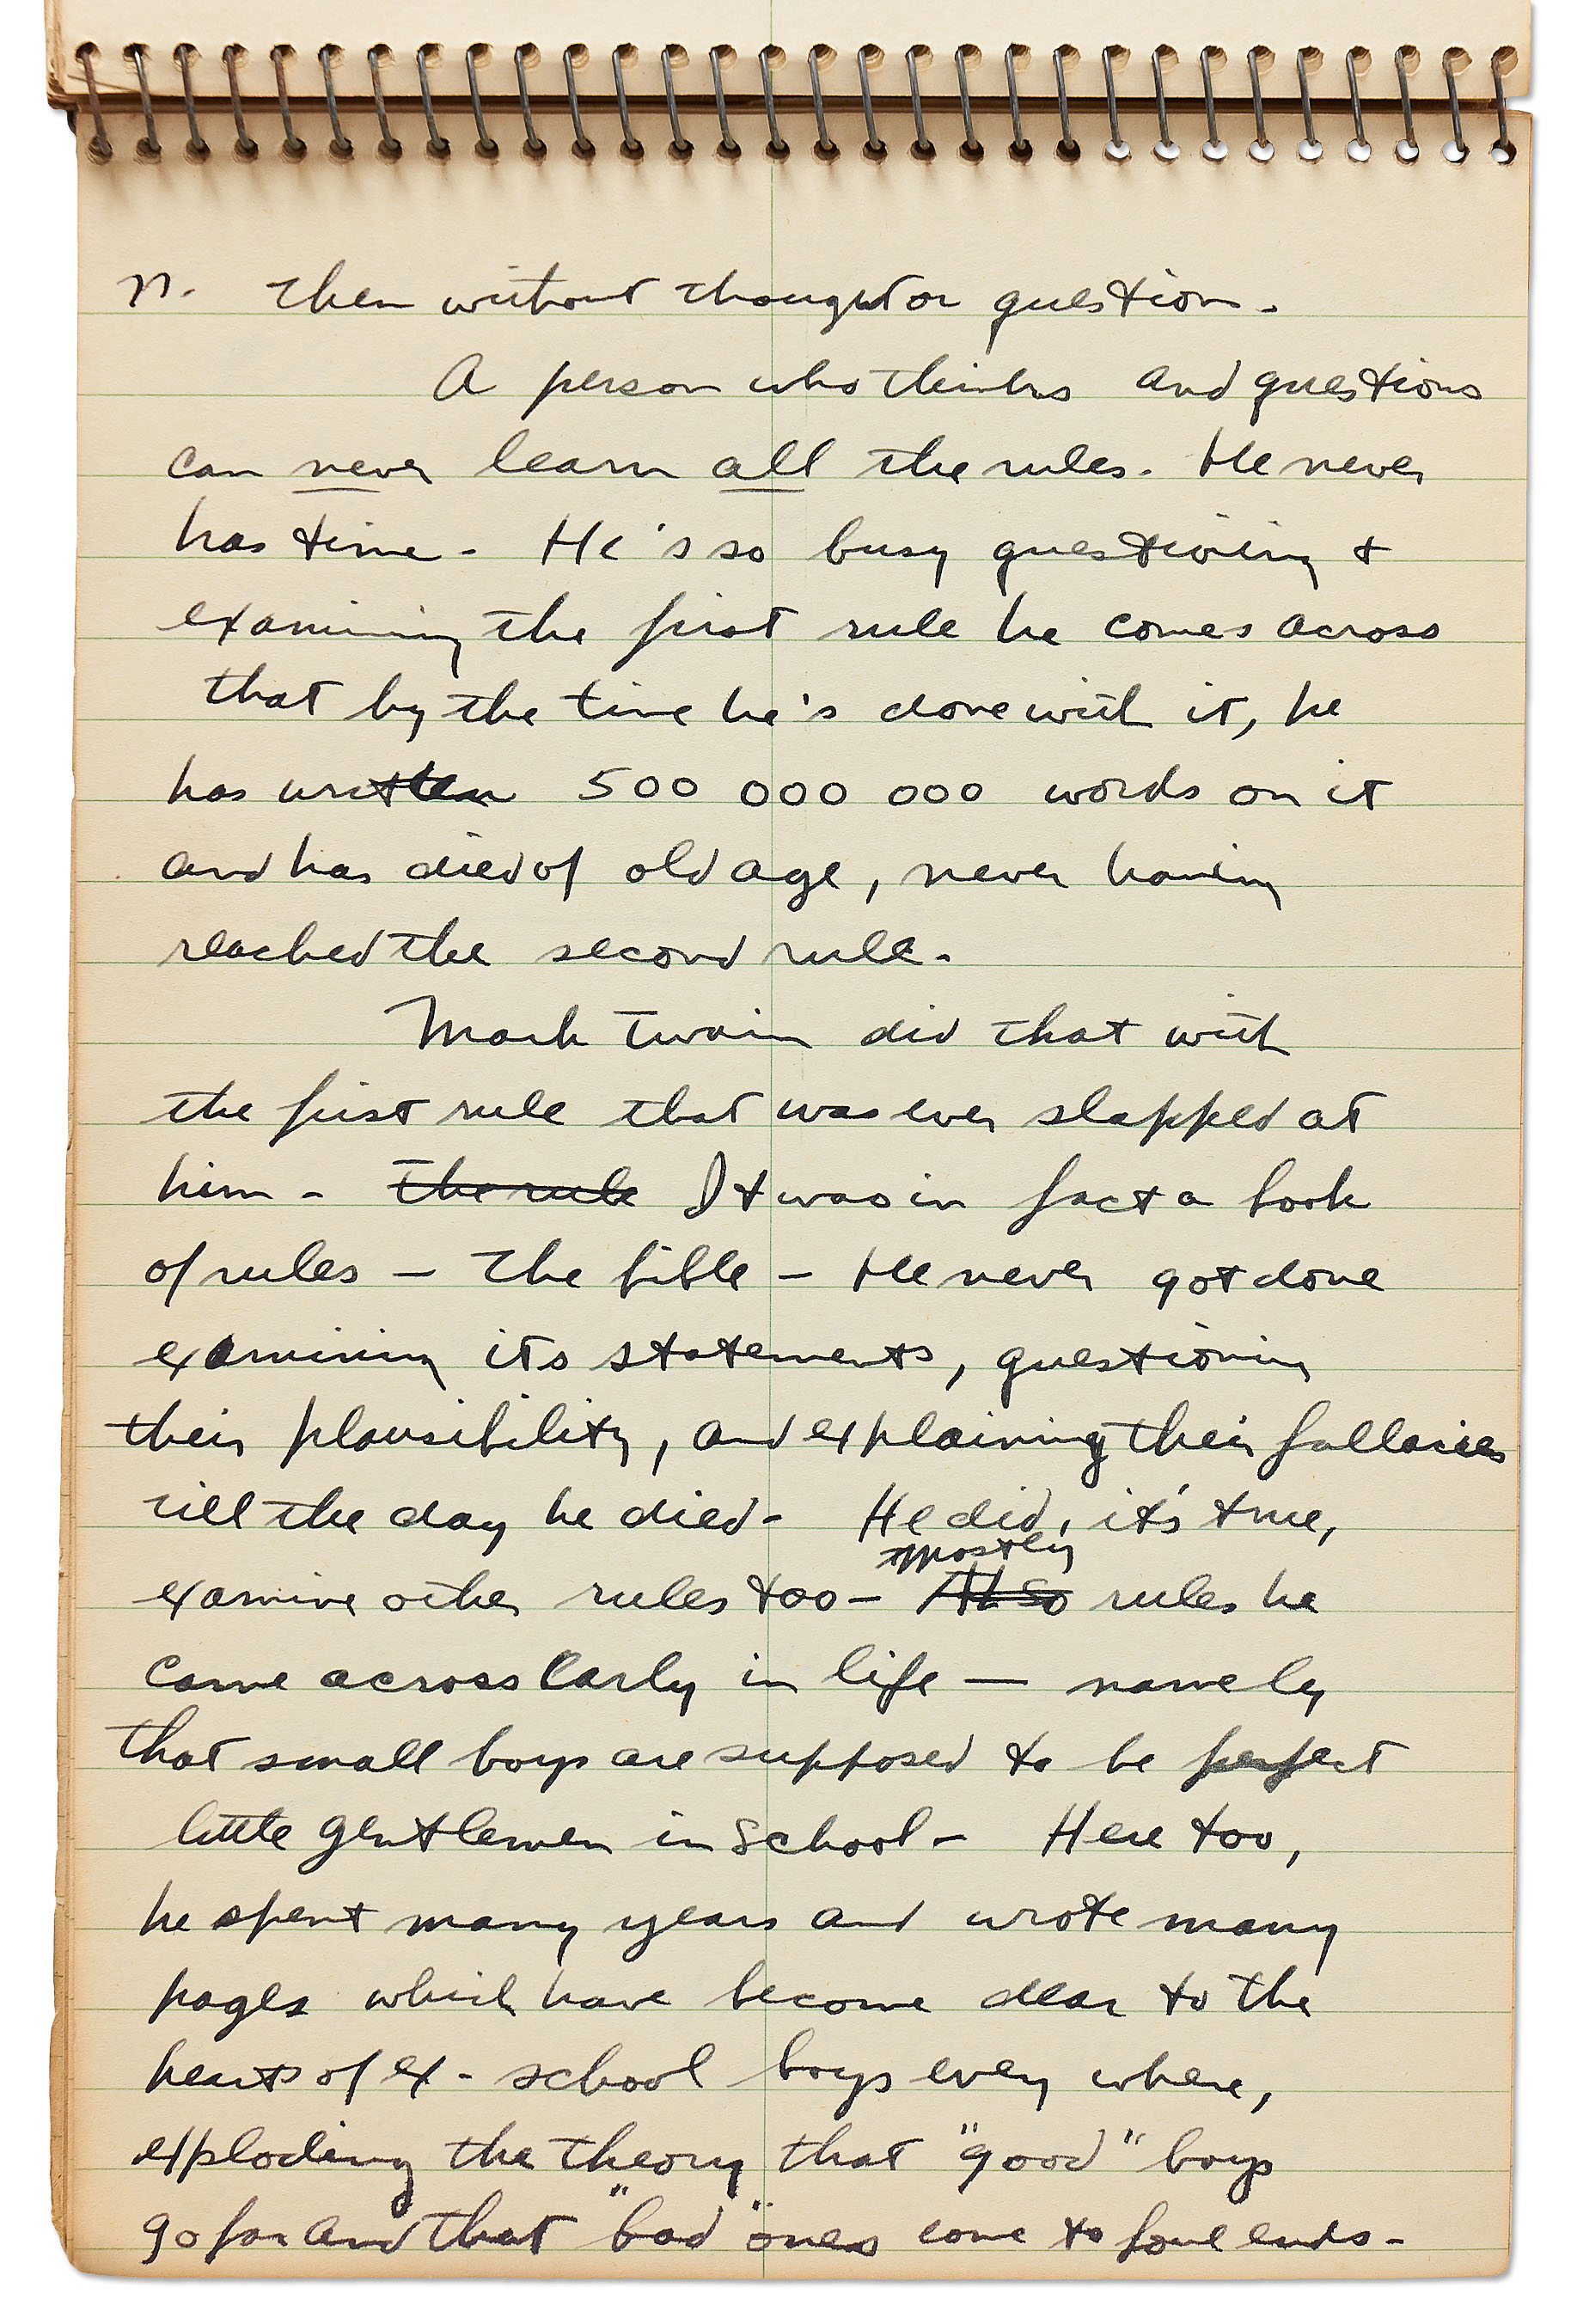 n. then without thought or question.
A person who thinks and questions
can never learn all the rules. He never
has time. He's so busy questioning +
examining the first rule he comes across
that by the time he's done with it, he
has written 500 000 000 words on it
and has died of old age, never having
reached the second rule.
Mark Twain did that with
the first rule that was ever slapped at
him - The rule It was in fact a book
of rules — the bible — He never got done
examining its statements, questioning
their plausibility, and explaining their fallacies
till the day he died - He did, it's true,
mostly
examine other rules too — Also rules he
came across early in life — namely
that small boys are supposed to be perfect
little gentlemen in school - Here too,
he spent many years and wrote many
pages which have become dear to the
hearts of ex-school boys every where,
exploding the theory that "good" boys
go far and that "bad" ones come to foul ends -